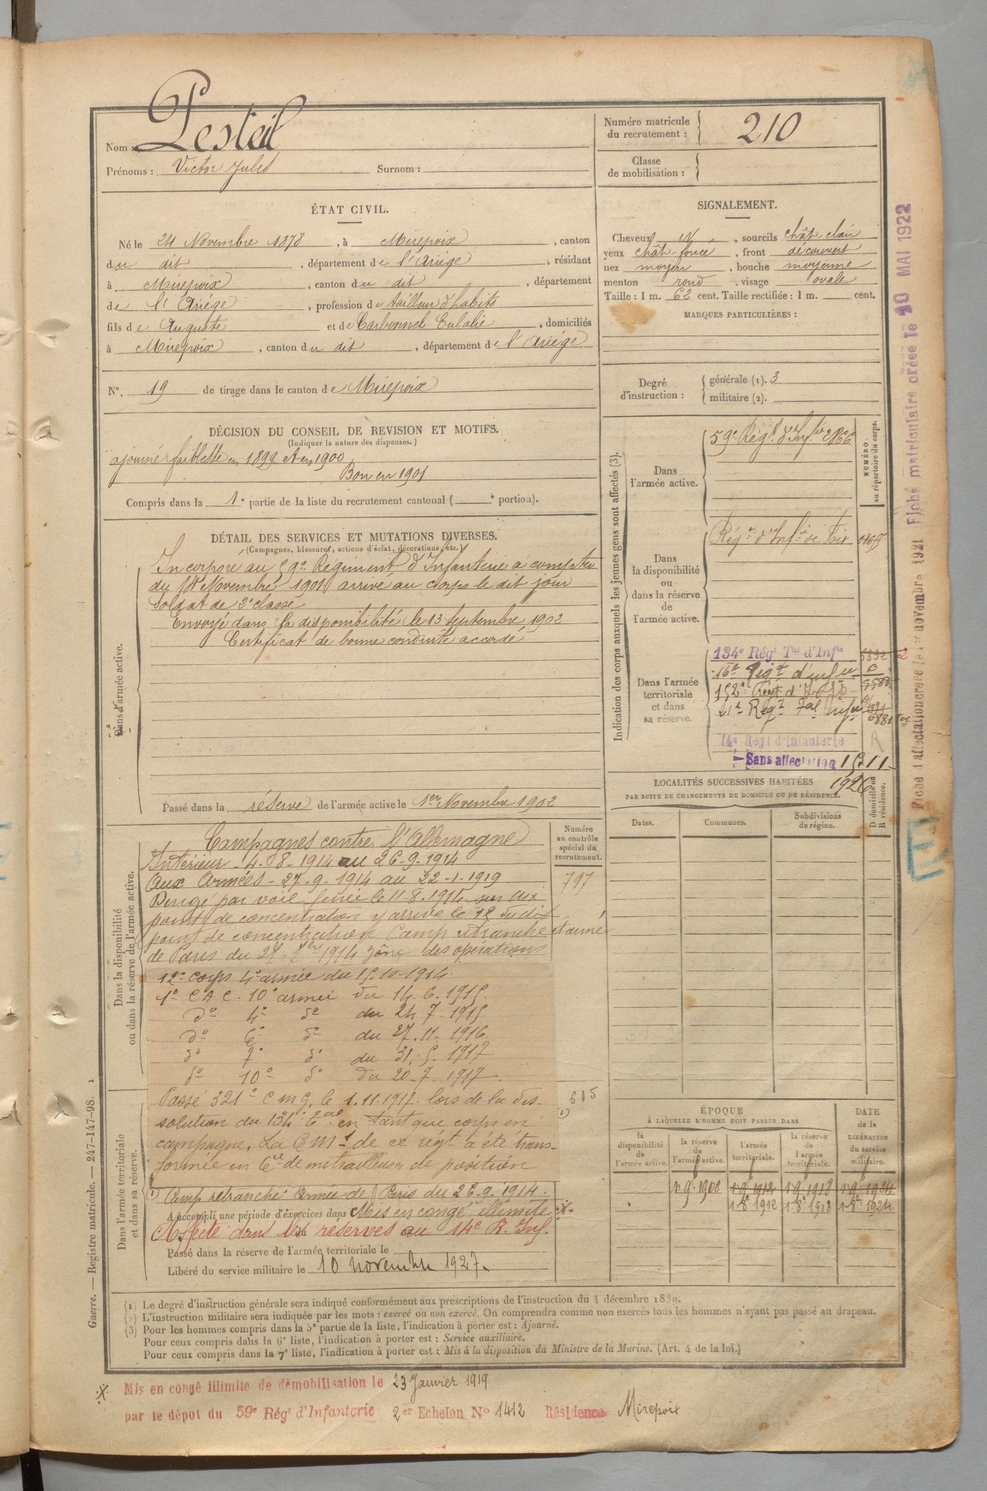 Nom : Pesteil
Prénoms : Victor Jules Surnom :
Numéro matricule
du recrutement : 210
Classe
de mobilisation :
ÉTAT CIVIL.
Né le 24 Novembre 1878, à Mirepoix, canton
du dit, département de l'Ariège, résidant
à Mirepoix, canton du dit, département
de l'Ariège, profession de tailleur d'habits
fils de Auguste et de Carbonnel Eulalie, domiciliés
à Mirepoix, canton du dit, département de l'Ariège
N°. 19 de tirage dans le canton de Mirepoix
SIGNALEMENT.
Cheveux, sourcils chât clair
yeux chât foncé, front découvert
nez moyen, bouche moyenne
menton rond, visage ovale
Taille : 1 m. 62 cent. Taille rectifiée : 1 m. cent.
MARQUES PARTICULIÈRES :
Degré
d'instruction :
générale (1). 3
militaire (2).
DÉCISION DU CONSEIL DE REVISION ET MOTIFS.
(Indiquer la nature des dispenses.)
ajourné faiblesse en 1899 et en 1900
Bon en 1901
Compris dans la 1e partie de la liste du recrutement cantonal ( e portion).
DÉTAIL DES SERVICES ET MUTATIONS DIVERSES.
(Campagnes, blessures, actions d'éclat, décorations, etc.)
Dans l'armée active.
Incorporé au 59e Régiment d'Infanterie à compter
du 14 Novembre 1901 arrivé au corps le dit jour
soldat de 2e classe
Envoyé dans la disponibilité le 13 septembre 1902
Certificat de bonne conduite accordé
Passé dans la réserve de l'armée active le 1er Novembre 1902
Indication des corps auxquels les jeunes gens sont affectés (3).
NUMÉRO
au répertoire du corps.
Dans
l'armée active.
59e Régt d'Infie 2866
Dans
la disponibilité
ou
dans la réserve
de
l'armée active.
Régt d'Infie de Foix
Dans l'armée
territoriale
et dans
sa réserve.
134e Régt Tal d'Infie
16e Régt d'infie
152e Régt d'Infie
21e Régt Tal Infie
14e Régt d'Infanterie
Sans affectation
1926
LOCALITÉS SUCCESSIVES HABITÉES
PAR SUITE DE CHANGEMENTS DE DOMICILE OU DE RÉSIDENCE.
D domicile
R résidence.
Dates.
Communes.
Subdivisions
de région.
Dans la disponibilité
ou dans la réserve de l'armée active.
Numéro
au contrôle
spécial du
recrutement.
797
Campagnes contre l'Allemagne
Intérieur - 4-8-1914 au 26-9-1914
Aux Armées - 27-9-1914 au 22-1-1919
Dirigé par voie ferrée le 11-8-1914 sur
point de concentration y arrive le 12 dudit
point de concentration Camp retranché
de Paris zône des opérations
12e corps 4e armée du 15-10-1914
1er C A C 10e armée du 14 6. 1915
do 4e do du 24 7. 1915
do 6e do du 27.11. 1916
do 7e do du 31. 5. 1917
do 10e do du 20-7 1917
Passé 321e C M P, le 1.11.1917 lors de la dis
solution du 134e Tal en tant que corps en
campagne, La C M 1 de ce régt a été trans-
formée en Cie de mitrailleuses de position
615
Dans l'armée territoriale
et dans sa réserve.
(1) Camp retranché Armée de Paris du 26.9.1914.
A accompli une période d'exercices dans Mis en congé illimité
Affecté dans les réserves au 14e R. Inf.
Passé dans la réserve de l'armée territoriale le
Libéré du service militaire le 10 novembre 1927.
ÉPOQUE
À LAQUELLE L'HOMME DOIT PASSER DANS
DATE
de la
LIBÉRATION
du service
militaire.
la
disponibilité
de
l'armée active.
la réserve
de
l'armée active.
l'armée
territoriale.
la réserve
de
l'armée
territoriale.
(1) Le degré d'instruction générale sera indiqué conformément aux prescriptions de l'instruction du 4 décembre 1889.
(2) L'instruction militaire sera indiquée par les mots : exercé ou non exercé. On comprendra comme non exercés tous les hommes n'ayant pas passé au drapeau.
(3) Pour les hommes compris dans la 5e partie de la liste, l'indication à porter est : Ajourné.
Pour ceux compris dans la 6e liste, l'indication à porter est : Service auxiliaire.
Pour ceux compris dans la 7e liste, l'indication à porter est : Mis à la disposition du Ministre de la Marine. (Art. 4 de la loi.)
Mis en congé illimité de démobilisation le 23 Janvier 1919
par le dépot du 59e Régt d'Infanterie 2er Echelon No 1412 Résidence Mirepoix
Guerre. — Registre matricule. — 247-147-98.
Fiche d'affectation créée le 1er novembre 1921 Fiche matriculaire créée le 20 MAI 1922